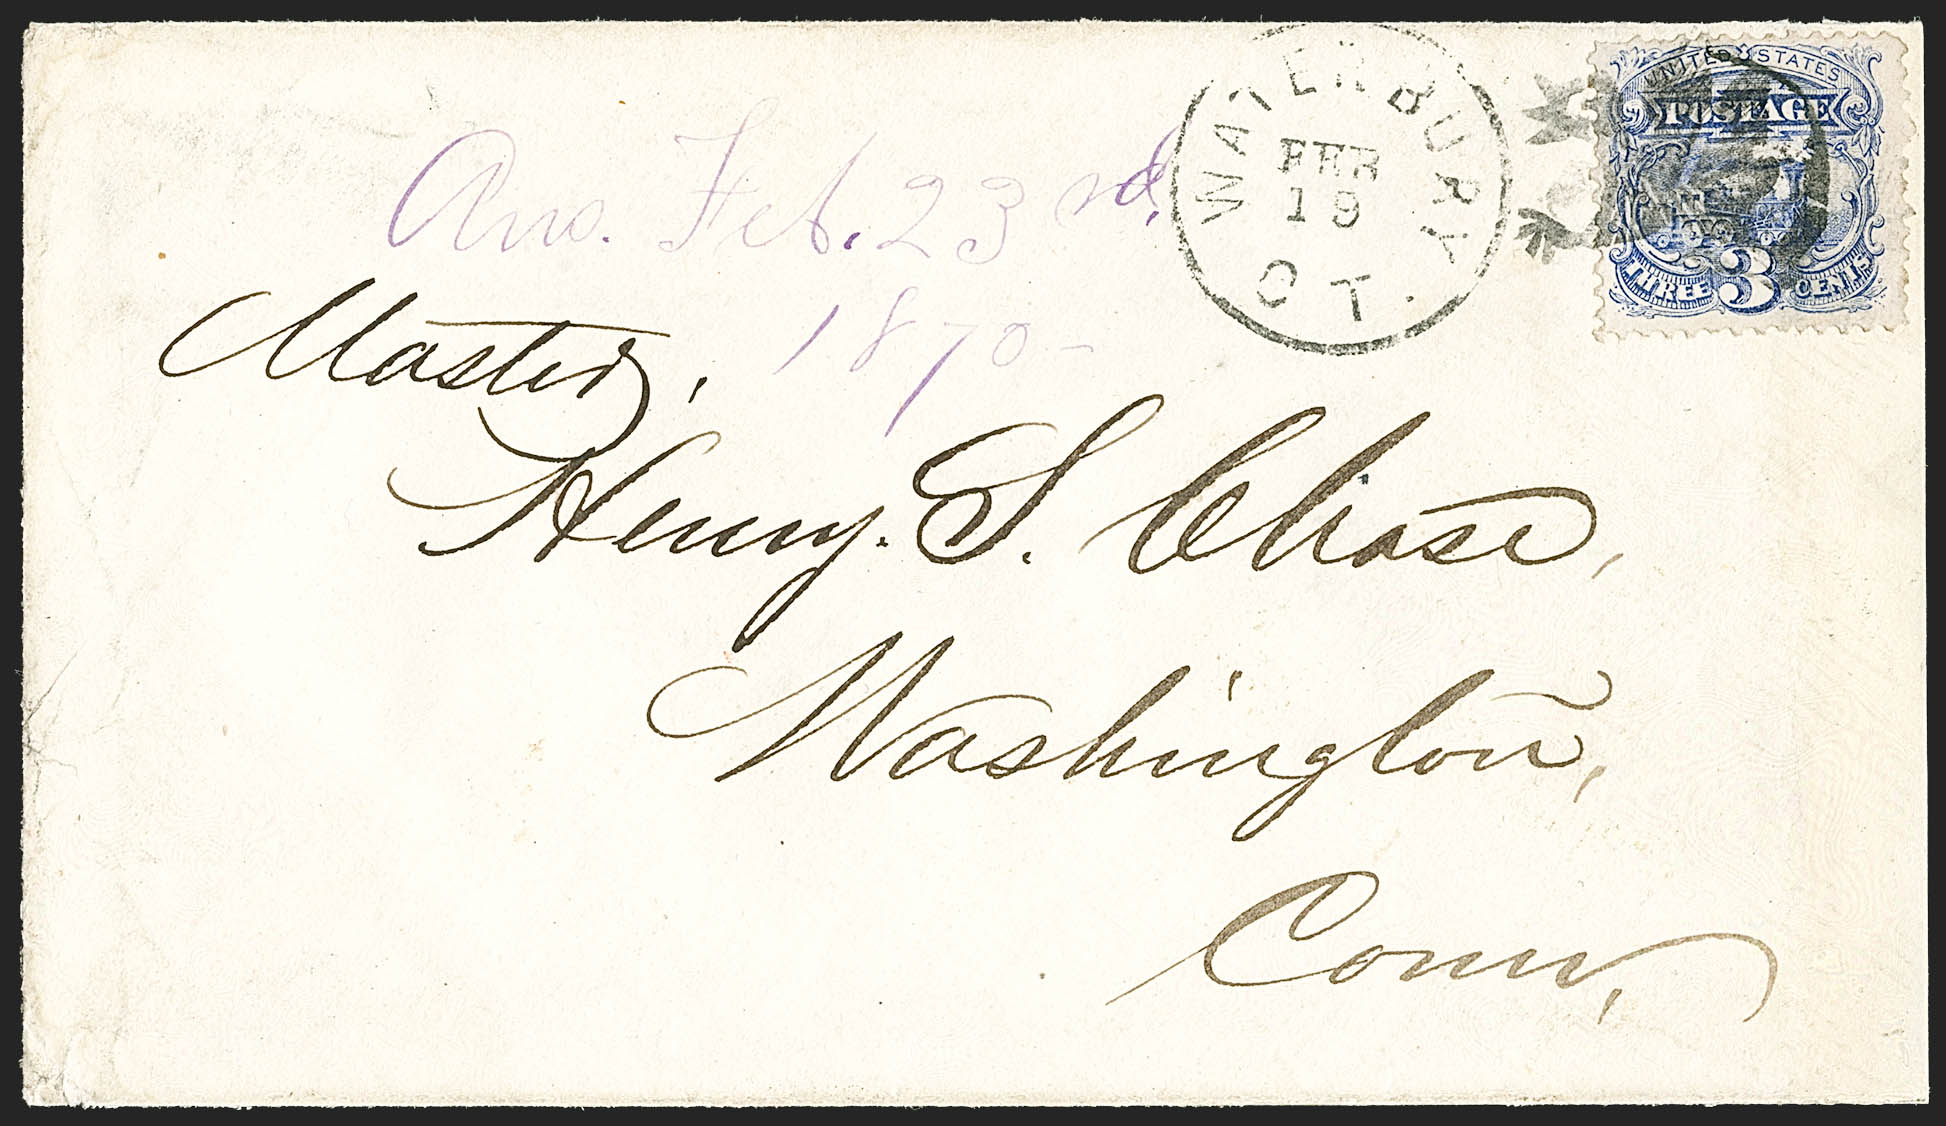 WATERBURY
FEB
19
CT.
UNITED STATES
POSTAGE
THREE 3 CENTS
Ans. Feb. 23rd.
1870-
Master,
Henry. S. Chase,
Washington,
Conn,